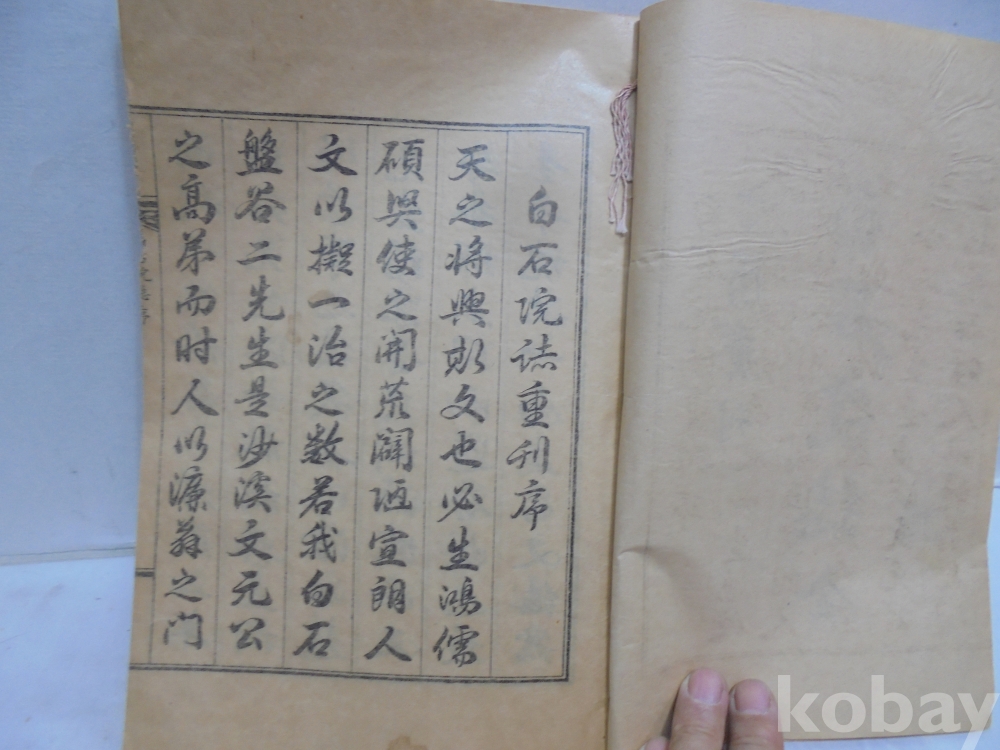 白石院誌重刊序
天之將興斯文也必生鴻儒
碩與使之開荒闢陋宣朗人
文以擬一治之数若我白石
盤谷二先生是沙溪文元公
之高弟而时人以濂翁之門
kobay